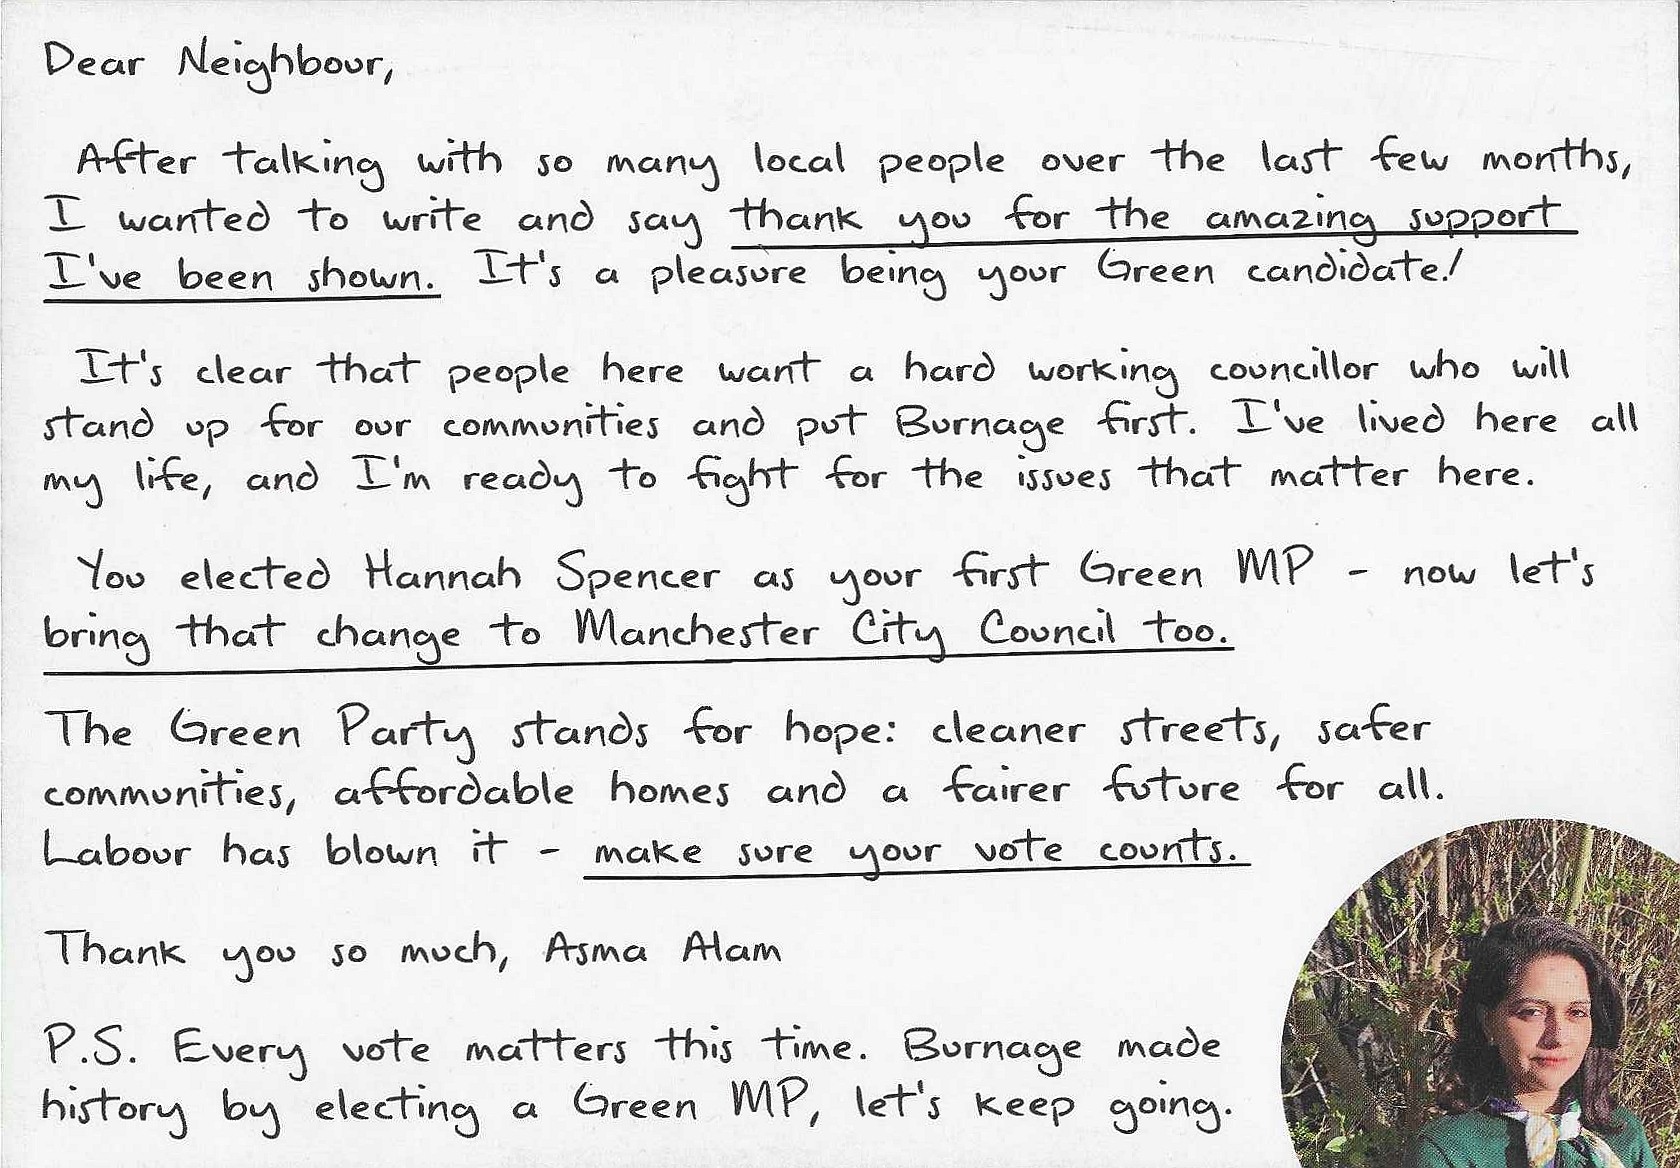 Dear Neighbour,
After talking with so many local people over the last few months,
I wanted to write and say thank you for the amazing support
I've been shown. It's a pleasure being your Green candidate!
It's clear that people here want a hard working councillor who will
stand up for our communities and put Burnage first. I've lived here all
my life, and I'm ready to fight for the issues that matter here.
You elected Hannah Spencer as your first Green MP - now let's
bring that change to Manchester City Council too.
The Green Party stands for hope: cleaner streets, safer
communities, affordable homes and a fairer future for all.
Labour has blown it - make sure your vote counts.
Thank you so much, Asma Alam
P.S. Every vote matters this time. Burnage made
history by electing a Green MP, let's keep going.